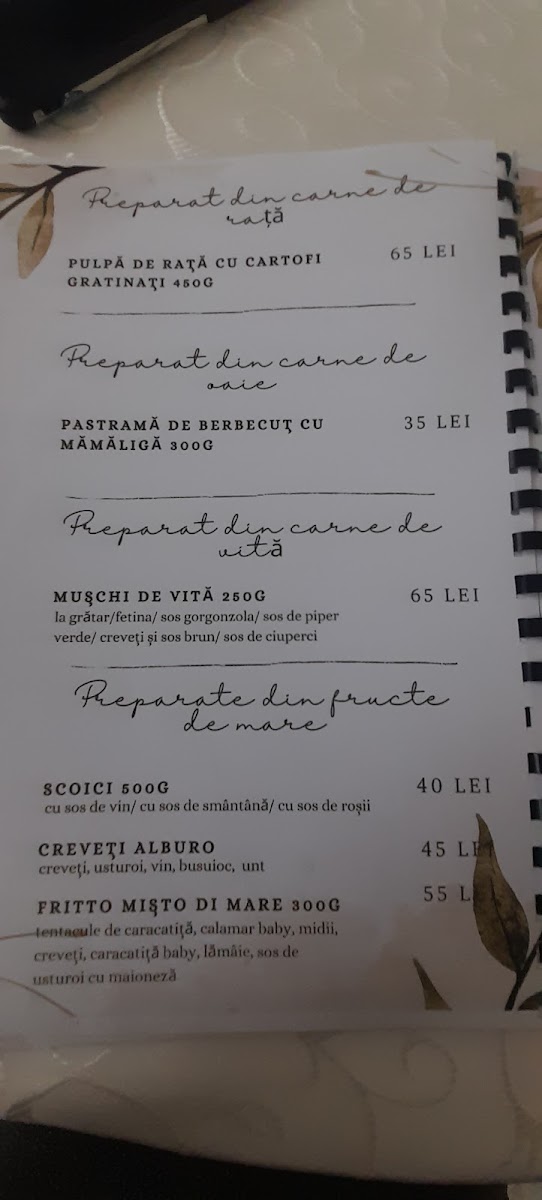 Preparat din carne de
rață
PULPĂ DE RAŢĂ CU CARTOFI
GRATINAŢI 450G
65 LEI
Preparat din carne de
oaie
PASTRAMĂ DE BERBECUŢ CU
MĂMĂLIGĂ 300G
35 LEI
Preparat din carne de
vită
MUŞCHI DE VITĂ 250G
65 LEI
la grătar/fetina/ sos gorgonzola/ sos de piper
verde/ creveți și sos brun/ sos de ciuperci
Preparate din fructe
de mare
SCOICI 500G
40 LEI
cu sos de vin/ cu sos de smântână/ cu sos de roșii
CREVEŢI ALBURO
45 LEI
creveți, usturoi, vin, busuioc, unt
FRITTO MIŞTO DI MARE 300G
55 LEI
tentacule de caracatiță, calamar baby, midii,
creveți, caracatiță baby, lămâie, sos de
usturoi cu maioneză